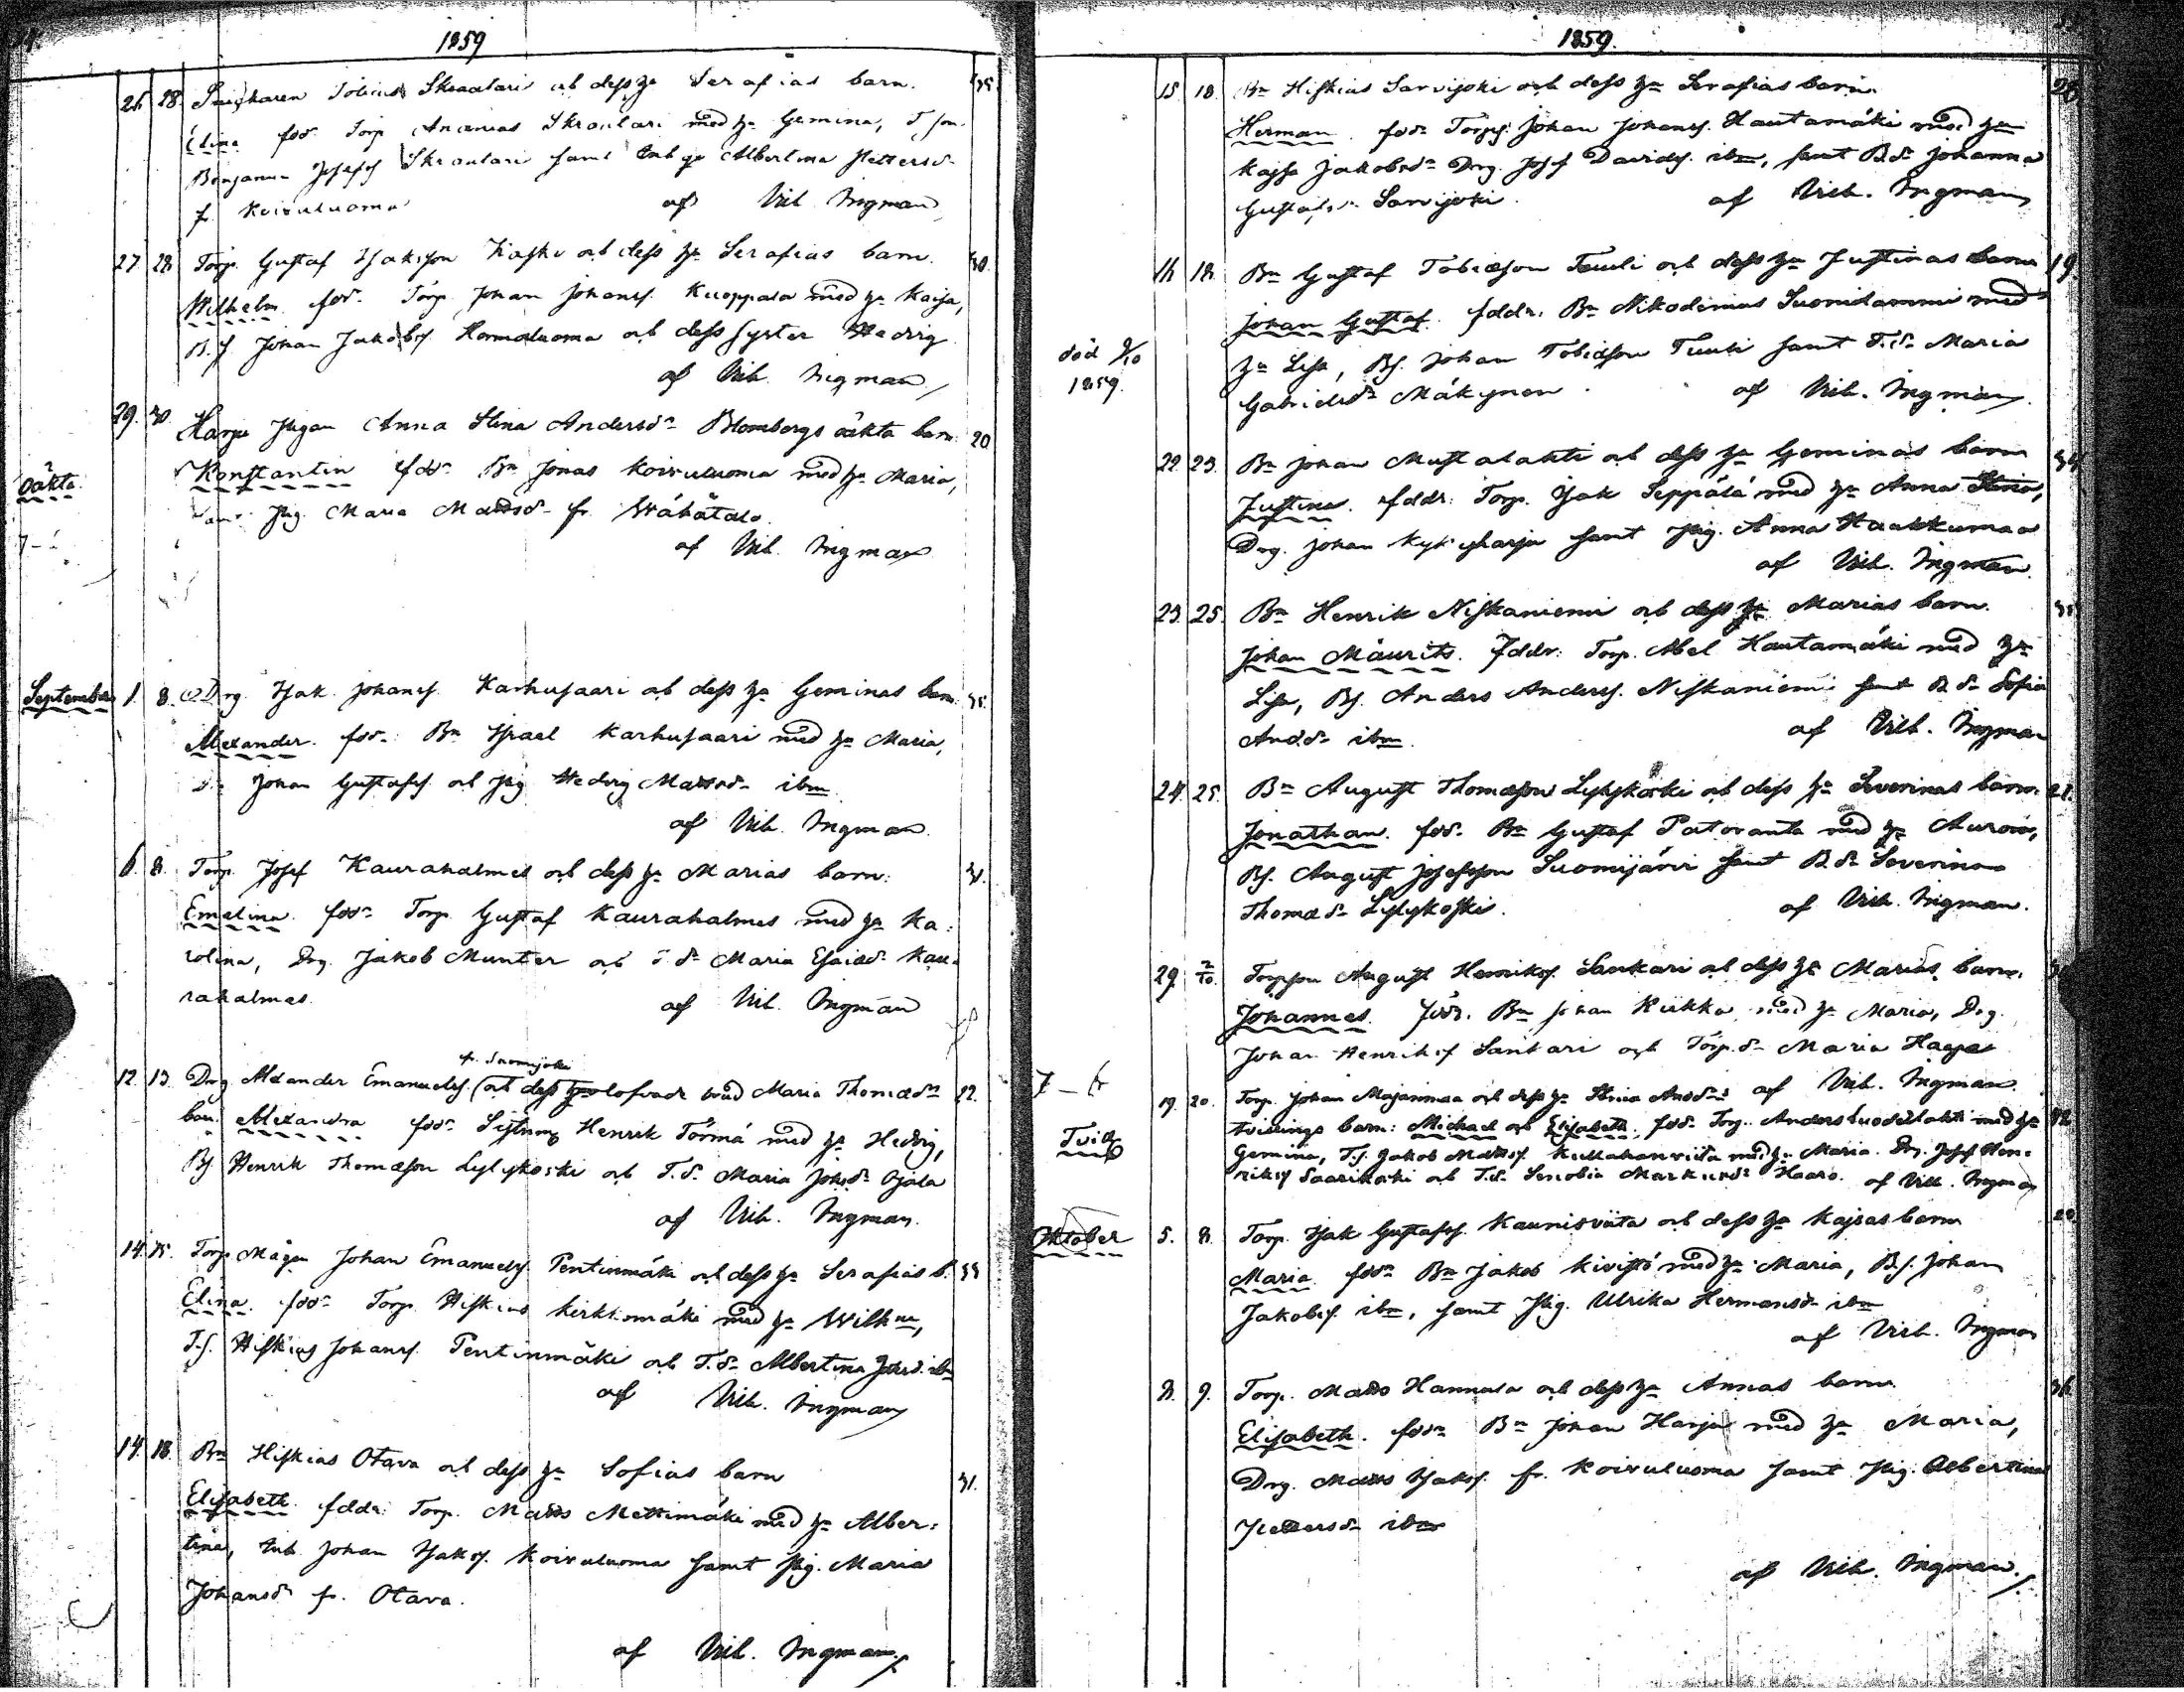 1859
26 28 Tobias Skraatari och dess ha Serafias barn. 35.
Elina fdr Torp Ananias Skraatari med ha Gemina, T son
Benjamin Josefss Skraatari samt Albertina
f. Koivuluoma af Vilh Ingman
27. 28 Torp. Gustaf Isaksson Kasku och dess ha Serafias barn. 30.
Wilhelm fdr Torp. Johan Johanss. Kuoppala med ha Kaisa,
B.S Johan Jakobss. Homaluoma och dess syster Hedvig
af Vilh. Ingman
29. 30. Harju Pigan Anna Stina Andersdr Blombergs oäkta barn 20
oäkta Konstantin fdr Bn Jonas Koivuluoma med ha Maria,
samt Pig. Maria Matsdr fr.
af Vilh. Ingman
September 1. 8. Drg. Isak Johanss. Karhusaari och dess ha Geminas barn. 35.
Alexander. fdr Bn Israel Karhusaari med ha Maria,
Johan Gustafss. och Pig Hedvig Matsdr ibm
af Vilh. Ingman.
6. 8. Torp. Josef Kaurahalmes och dess ha Marias barn.
Emelina fdr Torp. Gustaf Kaurahalmes med ha Ka:
rolina, Drg. Jakob Munter och T.dr Maria Esaiadr Kau-
rahalmes. af Vilh. Ingman
fr. Suomijoki
12. 13. Drg Alexander Emanuelss. (och dess ha lofvade brud Maria Thomædr 22.
barn Alexandra fdr Sytning Henrik Törmä med ha Hedvig,
BS Henrik Thomæson Lylykoski och T.dr Maria Johsdr Ojala
af Vilh. Ingman.
14. 15. Torp. Mågen Johan Emanuelss. Pentinmäki och dess ha Serafias b.
Elina. fdr Torp. Hiskias Kirkkomäki med ha Wilhna,
T.S. Hiskias Johanss. Pentinmäki och T.dr Albertina Johsd. ibm
af Vilh. Ingman
14. 18. Bn Hiskias Otava och dess ha Sofias barn 31.
Elisabeth. fddr. Torp. Matts Mettimäki med ha Alber:
tina, Inh Johan Isakss. Koivuluoma samt Pig. Maria
Johansdr fr. Otava.
af Vilh. Ingman
1859.
15 18. Bn Hiskias Sarvijoki och dess ha Serafias barn 28
Herman. fdr Torps. Johan Johanss. Hautamäki med ha
Kajsa Jakobsdr Drg. Josef Davidss. ibm, samt B.dr Johanna
Sarvijoki. af Vilh. Ingman
18. Bn Gustaf Tobiæson Tuuli och dess ha Justinas barn 19.
Johan Gustaf. fddr. Bn Nikodemus Suonidammi med
död 9/10 ha Lisa, BS. Johan Tobiæson Tuuli samt T.dr Maria
1859. Gabrielsdr Mäkynen. af Vilh. Ingman.
22. 23. Bn Johan Mustalahti och dess ha Geminas barn 34
Justina. fddr. Torp. Isak Seppälä med ha Anna Stina,
Drg. Johan Kykyharju samt Pig. Anna Haukkumaa
af Vilh. Ingman.
23. 25. Bn Henrik Niskaniemi och dess ha Marias barn.
Johan Maurits. fddr. Torp. Abel Hautamäki med ha
Lisa, BS. Anders Anderss. Niskaniemi samt B.dr Sofia
And.dr ibm. af Vilh. Ingman
24. 25. Bn August Thomæson Lylykoski och dess ha Severinas barn. 21.
Jonathan. fdr Bn Gustaf Patoranta med ha Aurora,
BS. August Josefsson Suomijärvi samt B.dr Severina
Thomædr Lylykoski. af Vilh. Ingman.
29. 2/10. Torpson August Henrikss. Sankari och dess ha Marias barn.
Johannes. fdr. Bn Johan Kiikka med ha Maria, Drg.
Johan Henrikss Sankari och Torp.dr Maria Haapa
af Vilh. Ingman
19. 20. Torp. Johan Majanmaa och dess ha Stina Andsdr
Tvill tvillings barn: Michael och Elisabeth. fdr Torp. Anders Luodelahti med ha 42.
Gemina, T.S. Jakob Mattss. Kullakanviita med ha Maria. Drg. Josef Hen:
rikss Saarikoski och T.dr Senobia Markusdr Haaro. af Vilh. Ingman
Oktober 5. 8. Torp. Isak Gustafss. Kaunisviita och dess ha Kajsas barn
Maria. fdr Bn Jakob Kivistö med ha Maria, BS. Johan
Jakobss. ibm, samt Pig. Ulrika Hermansdr ibm
af Vilh. Ingman
8. 9. Torp. Matts Hannula och dess ha Annas barn. 36.
Elisabeth. fdr Bn Johan Harju med ha Maria,
Drg. Matts Isakss. fr. Koivuluoma samt Pig. Albertina
ibm
af Vilh. Ingman.